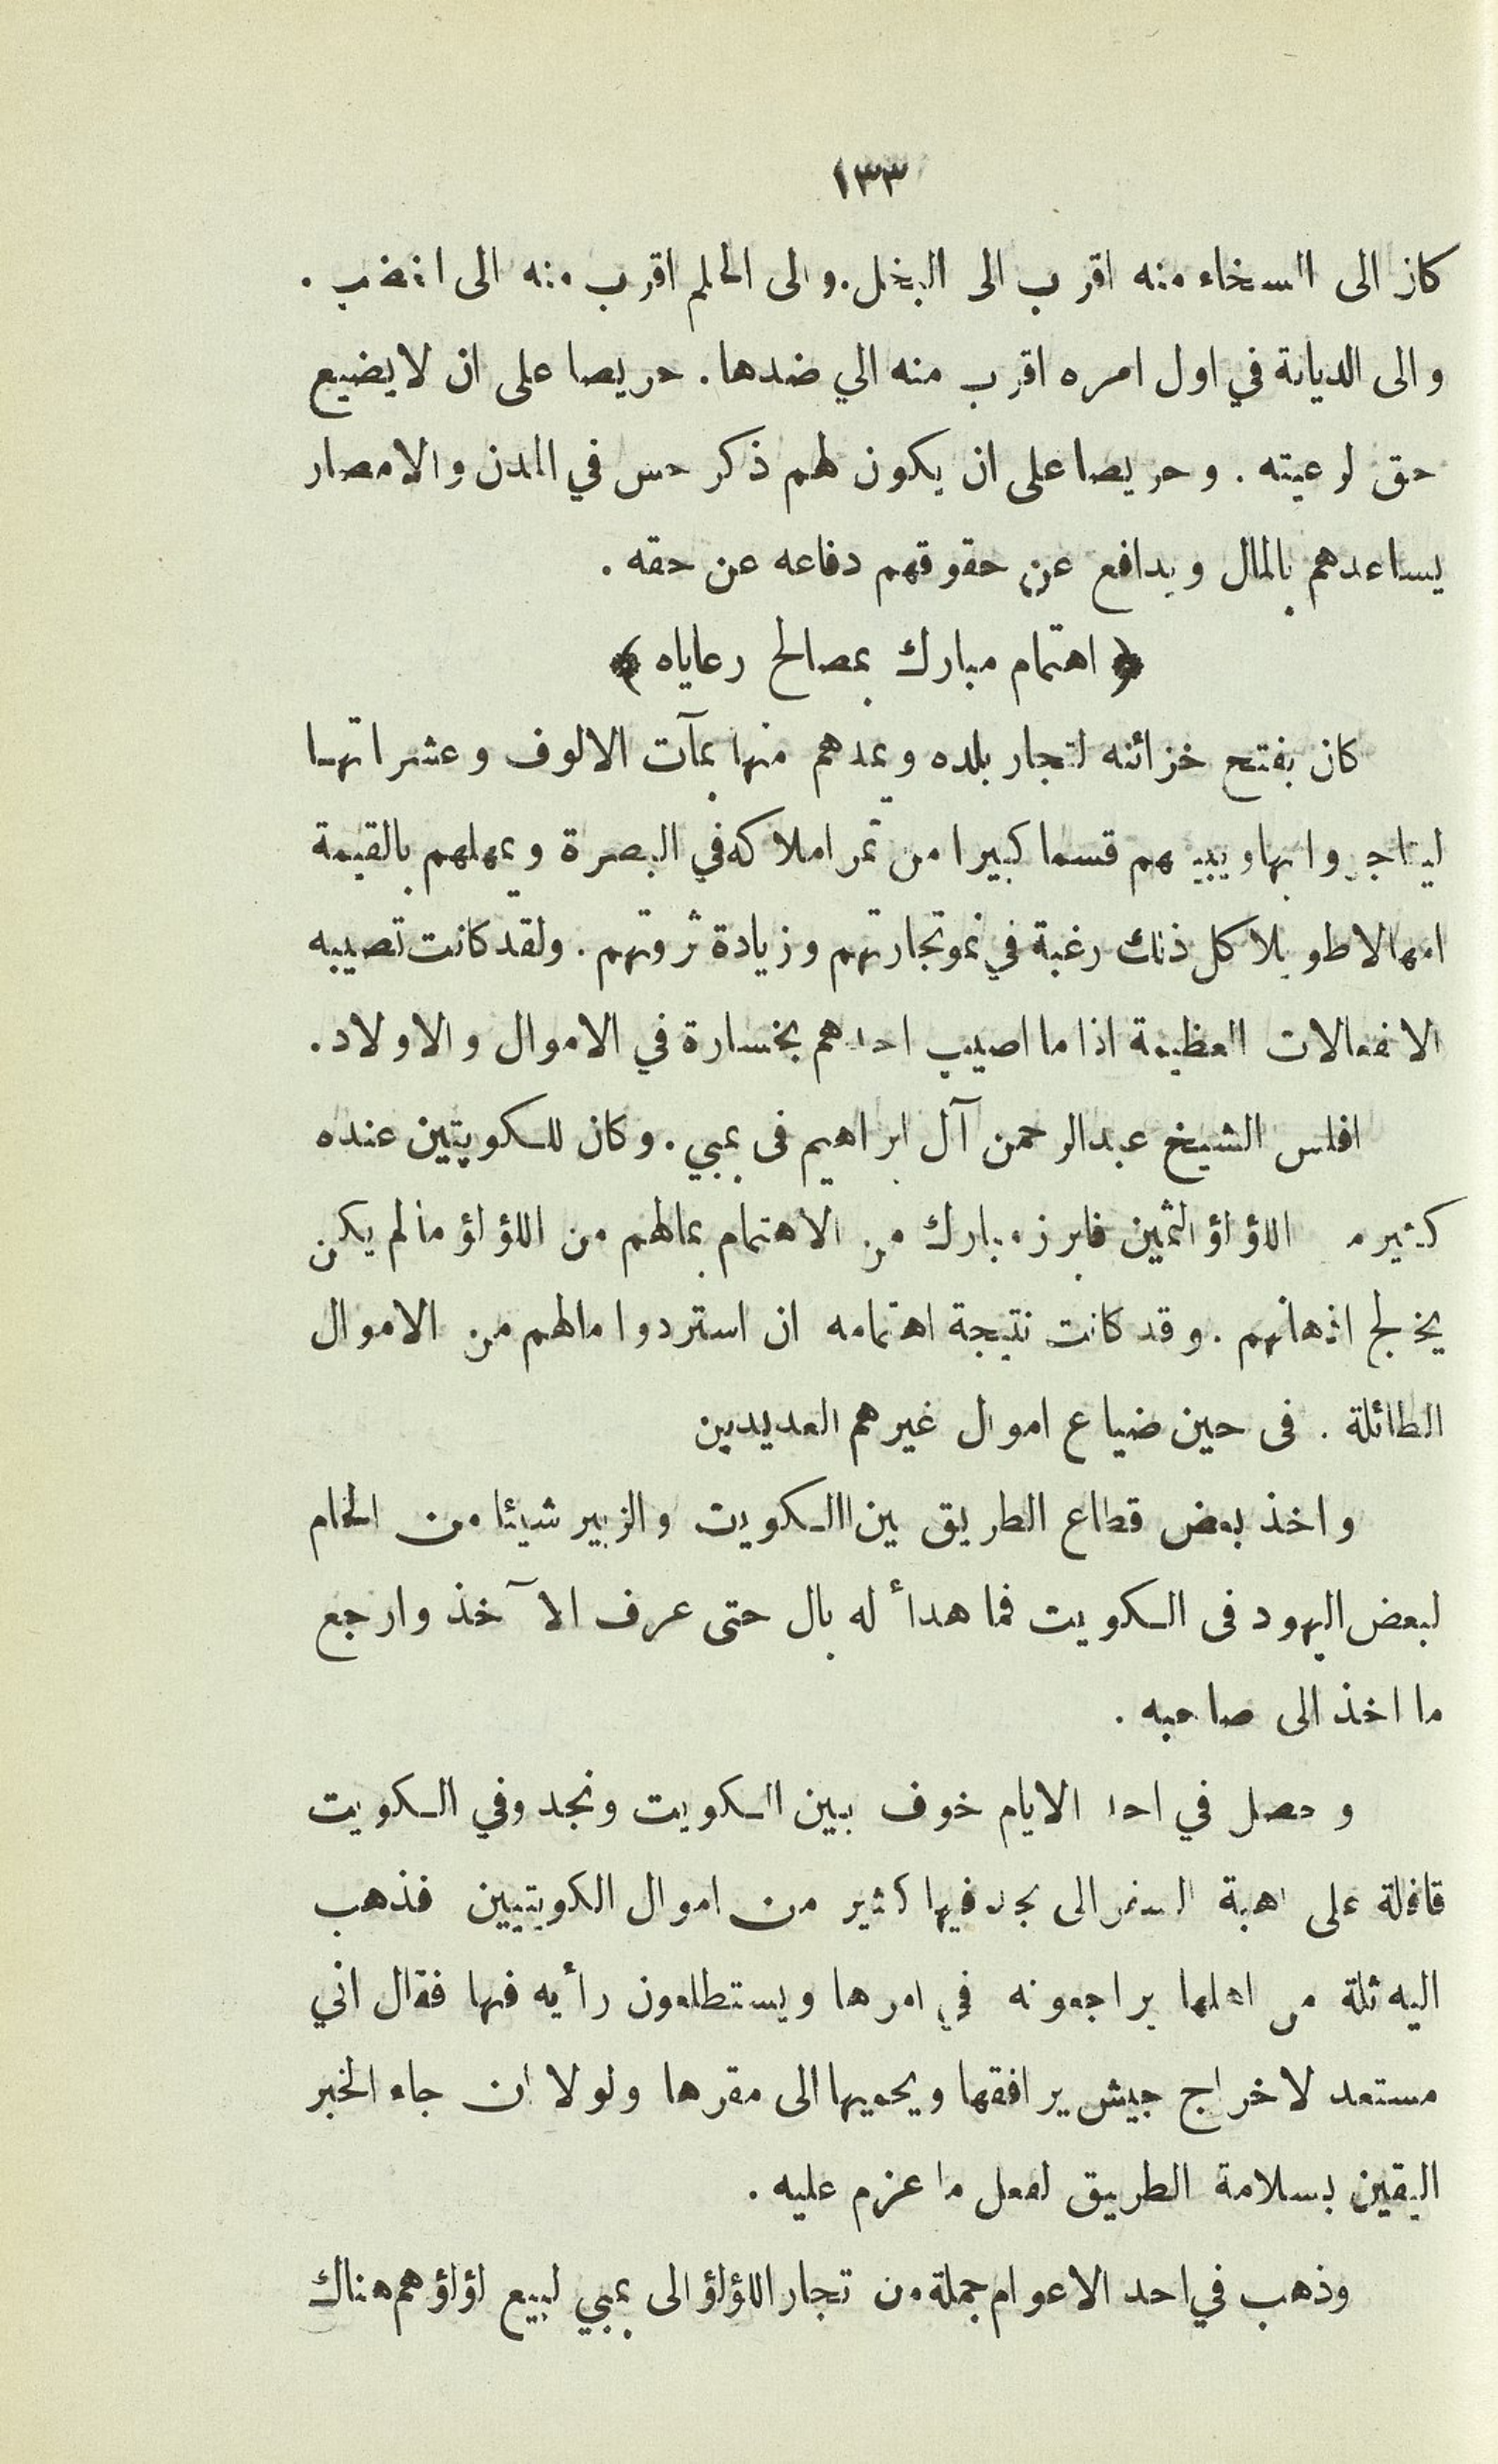 ١٣٣
كان الى السخاء منه اقرب الى البخل. والى الحلم اقرب منه الى الغضب .
والى الديانة في اول امره اقرب منه الي ضدها . حريصا على ان لا يضيع
حق لرعيته . وحريصا على ان يكون لهم ذكر حسن في المدن والامصار
يساعدهم بالمال ويدافع عن حقوقهم دفاعه عن حقه .
﴿ اهتمام مبارك بمصالح رعاياه ﴾
كان يفتح خزائنه لتجار بلده ويمدهم منها بمآت الالوف وعشراتها
ليتاجروا بها ويبيهم قسما كبيرا من تمر املاكه في البصرة ويمهلهم بالقيمة
امهالا طويلا كل ذلك رغبة في نمو تجارتهم وزيادة ثروتهم . ولقد كانت تصيبه
الانفعالات العظيمة اذا ما اصيب احدهم بخسارة في الاموال والاولاد .
افلس الشيخ عبدالرحمن آل ابراهيم فى بمبي . وكان للكويتيين عنده
كثير من اللؤلؤ الثمين فابرز مبارك من الاهتمام بمالهم من اللؤلؤ مالم يكن
يخالج اذهانهم . وقد كانت نتيجة اهتمامه ان استردوا مالهم من الاموال
الطائلة . فى حين ضياع اموال غيرهم العديدين
واخذ بعض قطاع الطريق بين الكويت والزبير شيئا من الخام
لبعض اليهود فى الكويت فما هدأ له بال حتى عرف الآخذ وارجع
ما اخذ الى صاحبه .
وحصل في احد الايام خوف بين الكويت ونجد وفي الكويت
قافلة على اهبة السفر الى نجد فيها كثير من اموال الكويتيين فذهب
اليه ثلة من اهلها يراجعونه في امرها ويستطلعون رأيه فيها فقال اني
مستعد لاخراج جيش يرافقها ويحميها الى مقرها ولولا ان جاء الخبر
اليقين بسلامة الطريق لفعل ما عزم عليه .
وذهب في احد الاعوام جملة من تجار اللؤلؤ الى بمبي لبيع لؤلؤهم هناك